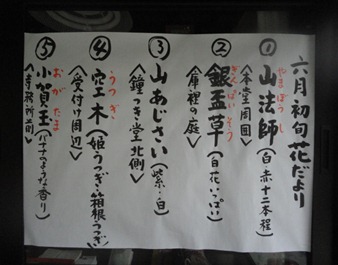 六月初旬花だより
① 山法師(白 赤十二本程)
やまぼうし
<本堂周囲>
② 銀盃草(白花いっぱい)
ぎんぱいそう
<庫裡の庭>
③ 山あじさい(紫・白)
<鐘つき堂北側>
④ 空木(姫うつぎ・箱根うつぎ)
うつぎ
<受付け周辺>
⑤ 小賀玉(バナナのような香り)
おがたま
<寺務所前>